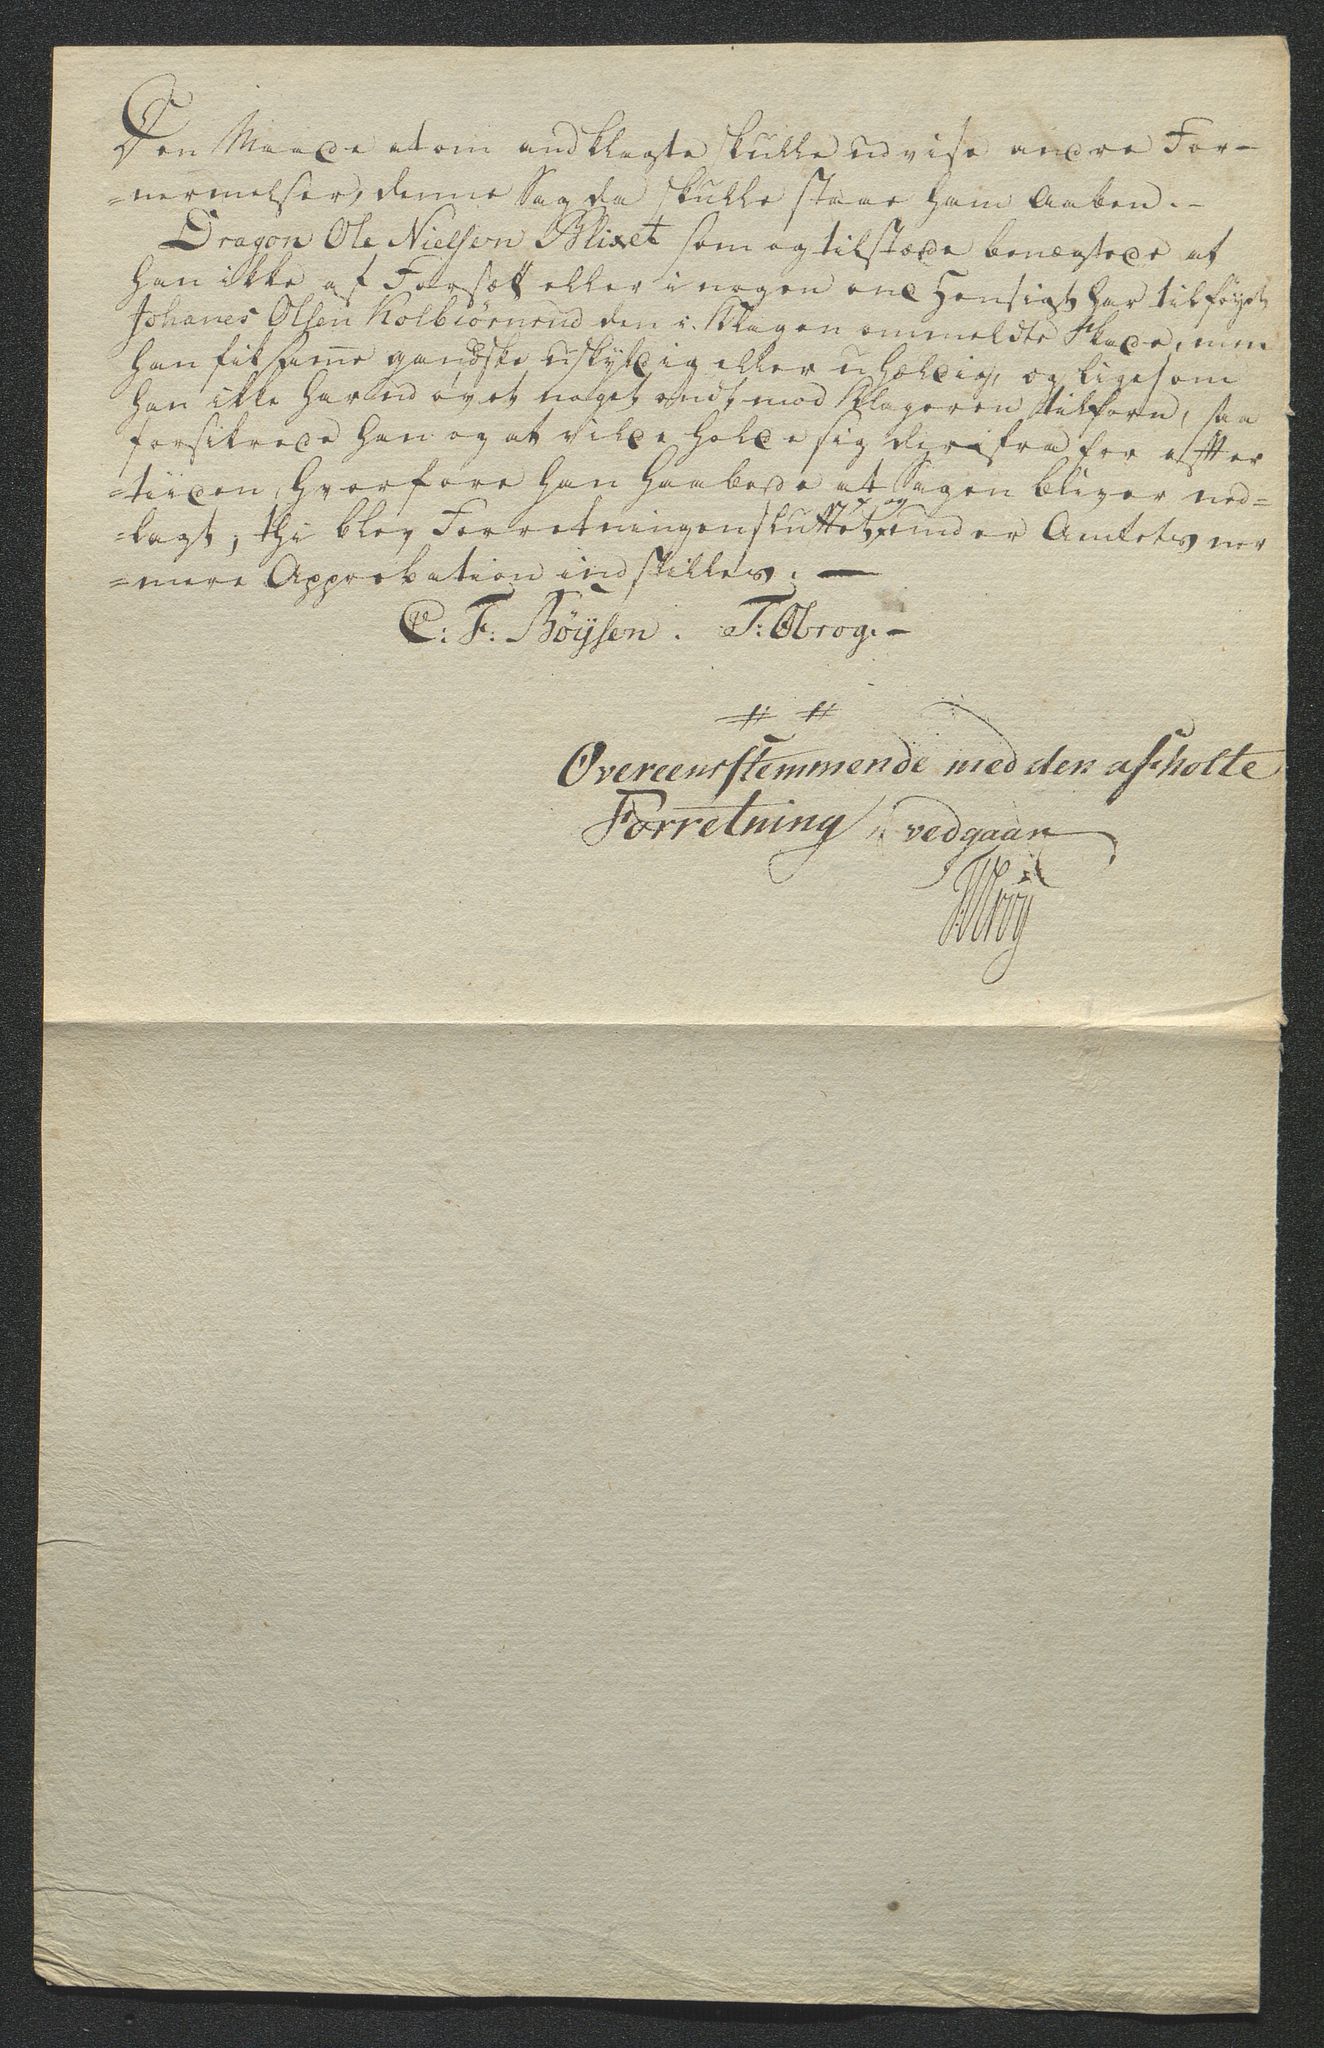 Den Maade at om andklagte skulle udvise andre For-
=nermelser, denne Sag da skulle staae ham Aaben. -
Dragon Ole Nielsen Blixet som og tilstæde benægtede at
han ikke af Forsætt eller i nogen ond Hensigt har tilføyet
Johanes Olsen Kolbiörnrud den i Klagen ommeldte Skade, men
han fik same gandske uskyldig eller uhældig, og ligesom
han ikke har ud øvet noget ondt mod Klageren tilforn, saa
forsikrede han og at vilde holde sig derifra for effter
=tiiden, hvorfore han haabede at Sagen bliver ned=
=lagt, thi blev Forretningen sluttet og under Amtets ner
=mere Approbation indstilles. —
C: F: Böÿsen. T: Obrog. -
Overeensstemmende med den afholte
Forretning, vedgaar